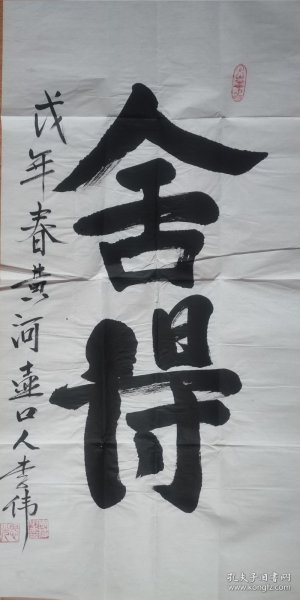 舍得
戊年春黄河壶口人李伟
孔夫子旧书网
www.kongfz.com